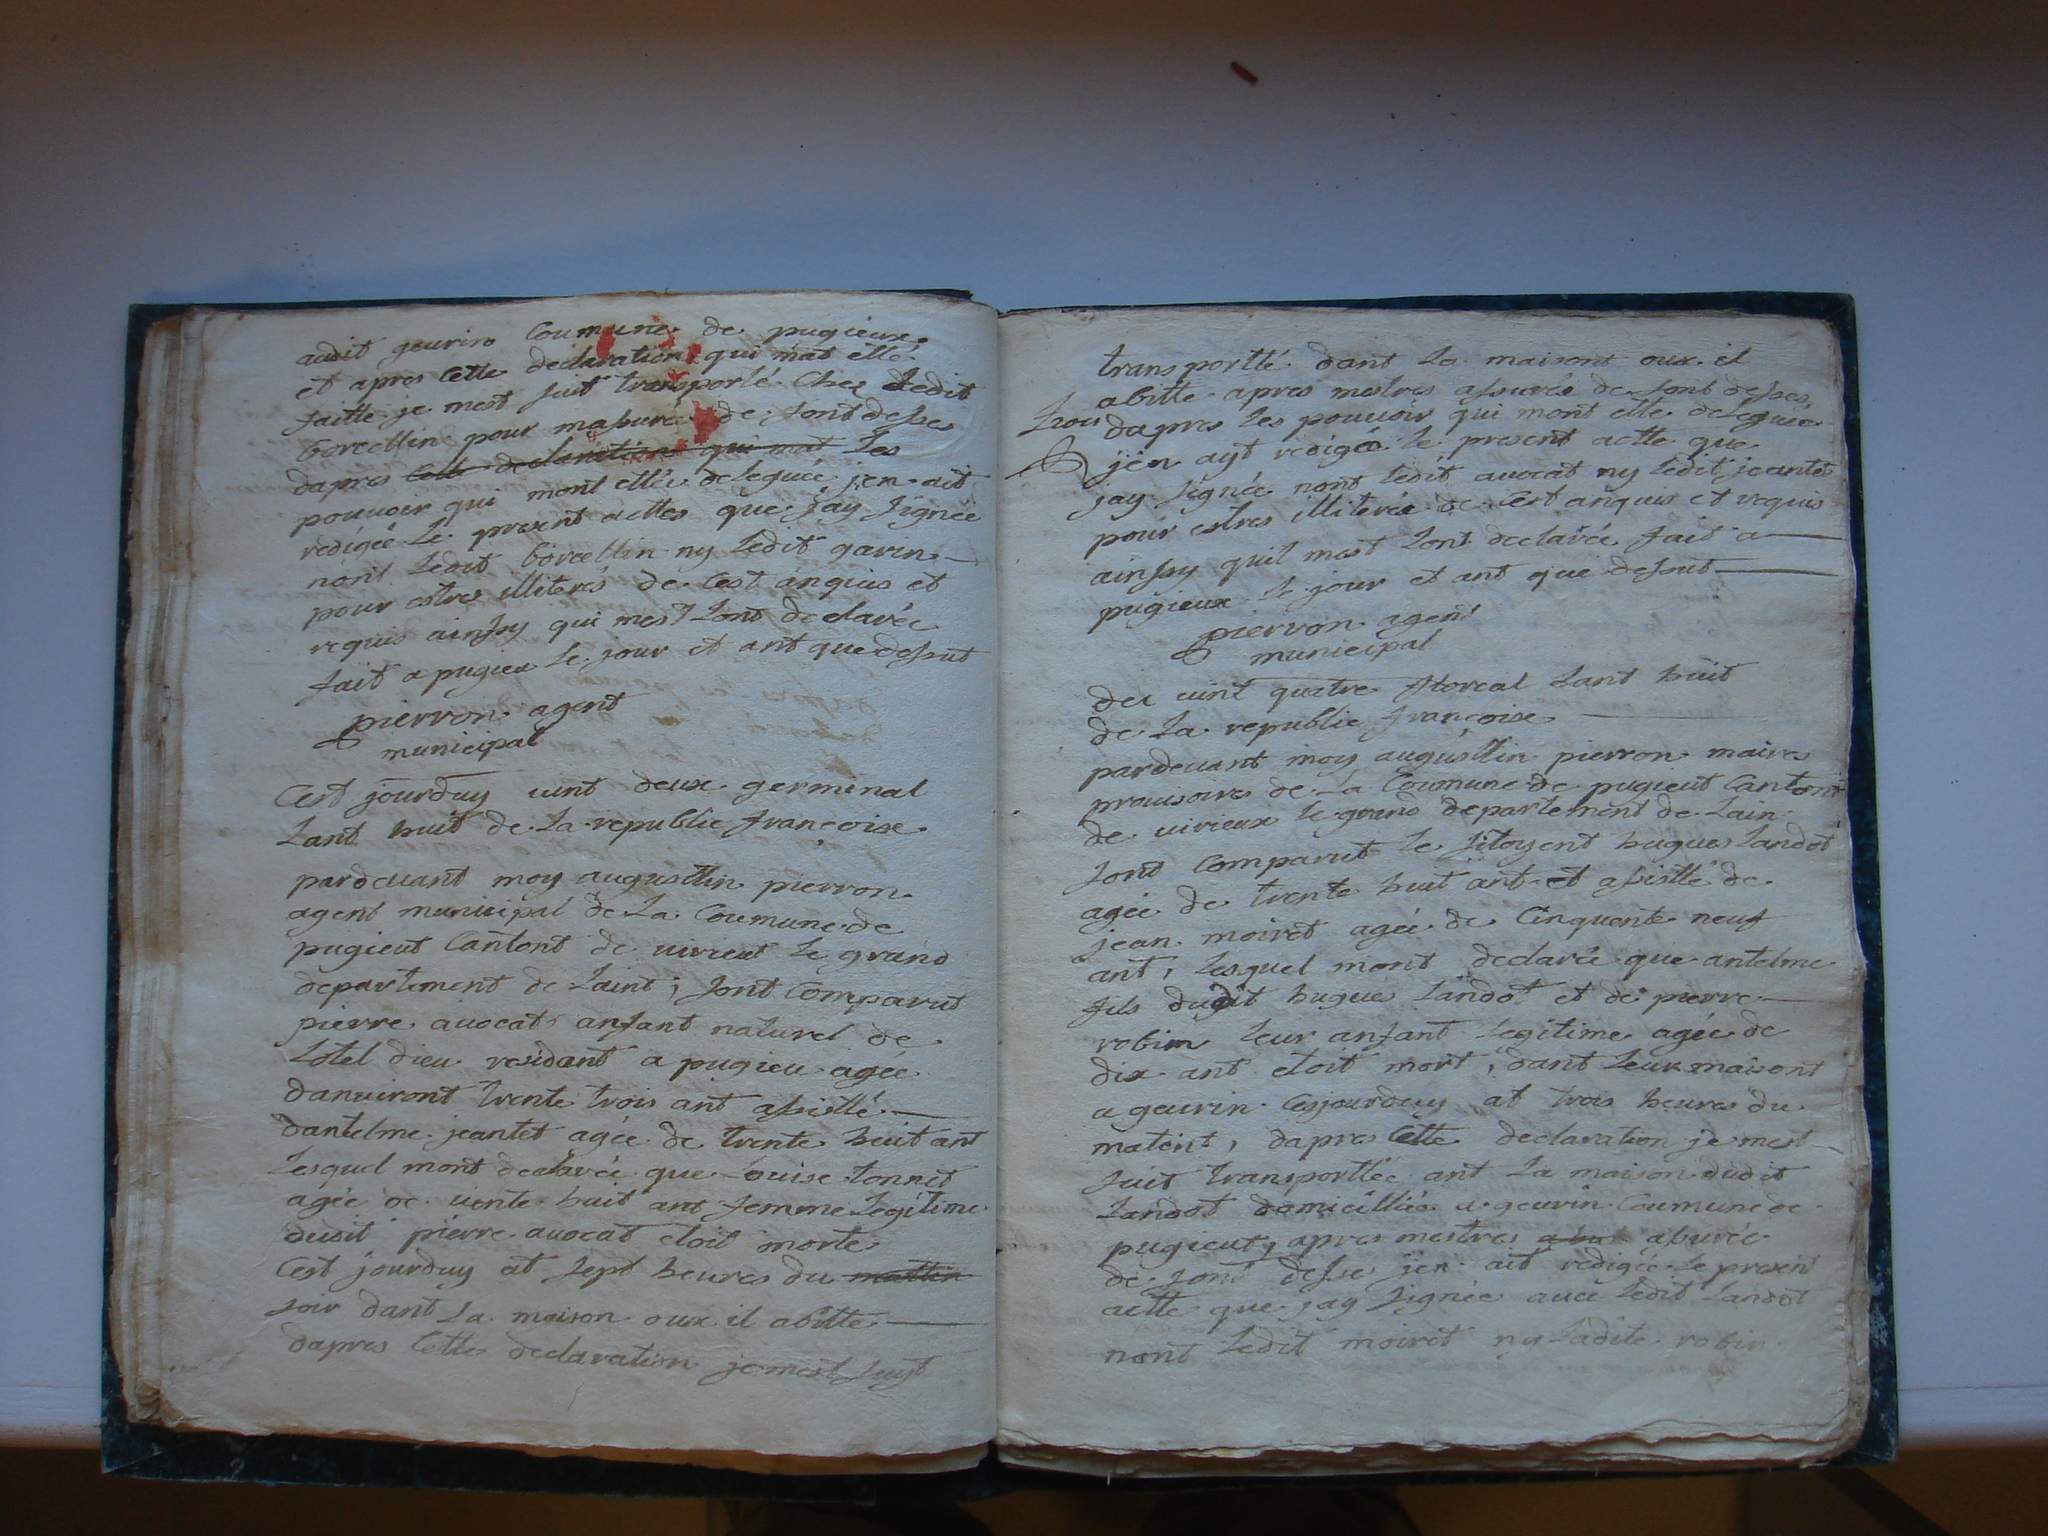 audit geurin Coumune de pugieux
et apres Cette declaration qui mat ellé
faitte je mest suit transporté Chez Ledit
borcellin pour masurée de sont desses
dapres Cette declaration qui mat Les
pouvoir qui mont ellé deleguée jen ait
redigée Le present acttes que jay signée
nont Ledit borcellin ny Ledit gavin
pour estres illiterés de Cest anquis et
requis ainssy qui mest Lont declarée
fait a pugieu Le jour et ant que dessut
pierron agent
municipal
Cest jourduy vint deux germinal
Lant huit de La republic françoise
pardevant moy augusttin pierron
agent municipal de La Coumune de
pugieut Cantont de virieut Le grand
departement de Laint, sont Comparut
pierre avocat anfant naturel de
Lotel dieu residant a pugieu agée
danviront trente trois ant assisté
dantelme jeantet agée de trente huit ant
Lesquel mont declarée que Louise tonnet
agée de vente huit ant femme Legitime
dudit pierre avocat etoit morte
Cest jourduy at sept heures du mattin
soir dant La maison oux il abitte
dapres Cettes declaration je mest suyt
transportté dant La maisont oux il
abitte apres mestres assurée de sont desses
trois dapres Les pouvoir qui mont ette deleguée
jen ayt redigée Le present actte que
jay signée nont Ledit avocat ny Ledit jeantet
pour estres illiterée de Cest anquis et requis
ainssy quil mest Lont declarée fait a
pugieux Le jour et ant que dessut
pierron agent
municipal
du vint quatre floreal Lant huit
de La republic françoise
pardevant moy augusttin pierron maires
provisoires de La Coumune de pugieut Cantont
de virieux le grand departement de Lain
sont Comparut Le sitoyent hugues Landot
agée de trente huit ant et assistté de
jean moiret agée de Cinquante neuf
ant, Lesquel mont declarée que antelme
fils dudit hugues Landot et de pierre
robin Leur anfant Legitime agée de
dix ant etoit mort, dant Leur maisont
a geurin Cesjourduy at trois heures du
mateint, dapres Cette declaration je mest
suit transporttée ant La maison dudit
Landot domicilliée a geurin Coumune de
pugieut, apres mestres assurée
de sont desse jen ait redigée Le present
actte que jay signée avec Ledit Landot
nont Ledit moiret ny Ladite robin